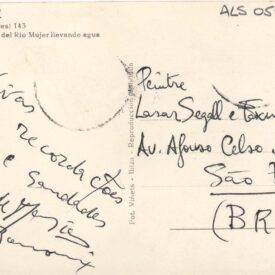 ALS 05
143
del Río Mujer llevando agua
Vivas
recordações
e Saudades
Fot. Viñets - Ibiza - Reproducción
Peintre
Lasar Segall e
Av. Afonso Celso
São
(BR